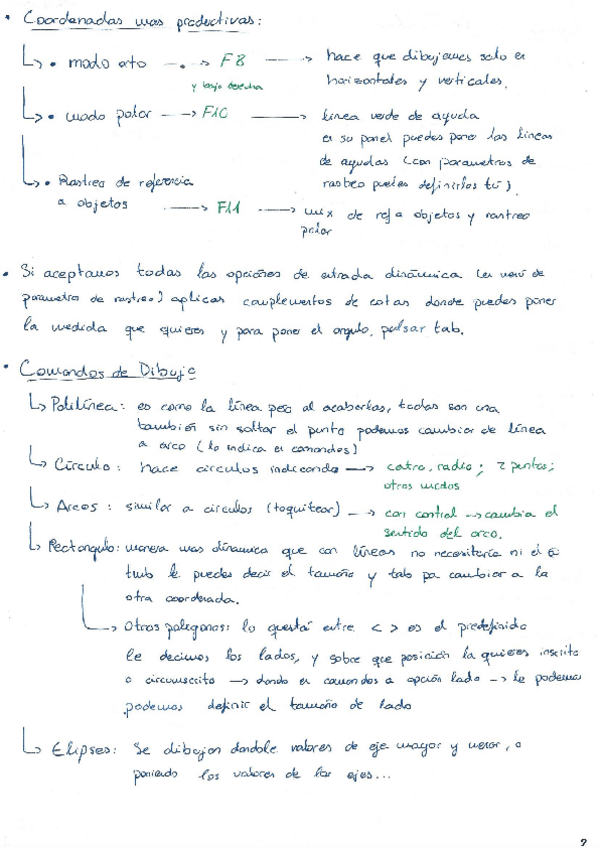 • Coordenadas mas productivas:
↳ • modo orto —.—> F8 ——> hace que dibujemos solo en
y bajo derecha horizontales y verticales.
↳ • modo polar —> F10 ——> linea verde de ayuda
en su panel puedes poner las lineas
de ayudas (con parametros de
rastreo puedes definirlos tú).
↳ • Rastreo de referencia
a objetos ——> F11 ——> mix de ref a objetos y rastreo
polar
• Si aceptamos todas las opciones de entrada dinámica (en menú de
parametro de rastreo) aplicas complementos de cotas donde puedes poner
la medida que quieres y para poner el angulo, pulsar tab.
• Comandos de Dibujo
↳ Polilínea: es como la línea pero al acabarlas, todas son una
también sin soltar el punto podemos cambiar de línea
a arco (lo indica en comandos)
↳ Círculo: hace circulos indicando —> centro, radio; 2 puntos;
otros modos
↳ Arcos: similar a circulos (toquitear) —> con control —> cambia el
sentido del arco.
↳ Rectangulo: manera mas dinámica que con líneas no necesitaría ni el
tmb le puedes decir el tamaño y tab pa cambiar a la
otra coordenada.
↳ Otros poligonos: lo que está entre < > es el predefinido
le decimos los lados, y sobre que posición la quieres inscrito
o circunscrito —> dando en comandos a opción lado —> le podemos
podemos definir el tamaño de lado
↳ Elipses: Se dibujan dandole valores de eje mayor y menor, o
poniendo los valores de los ejes...
2